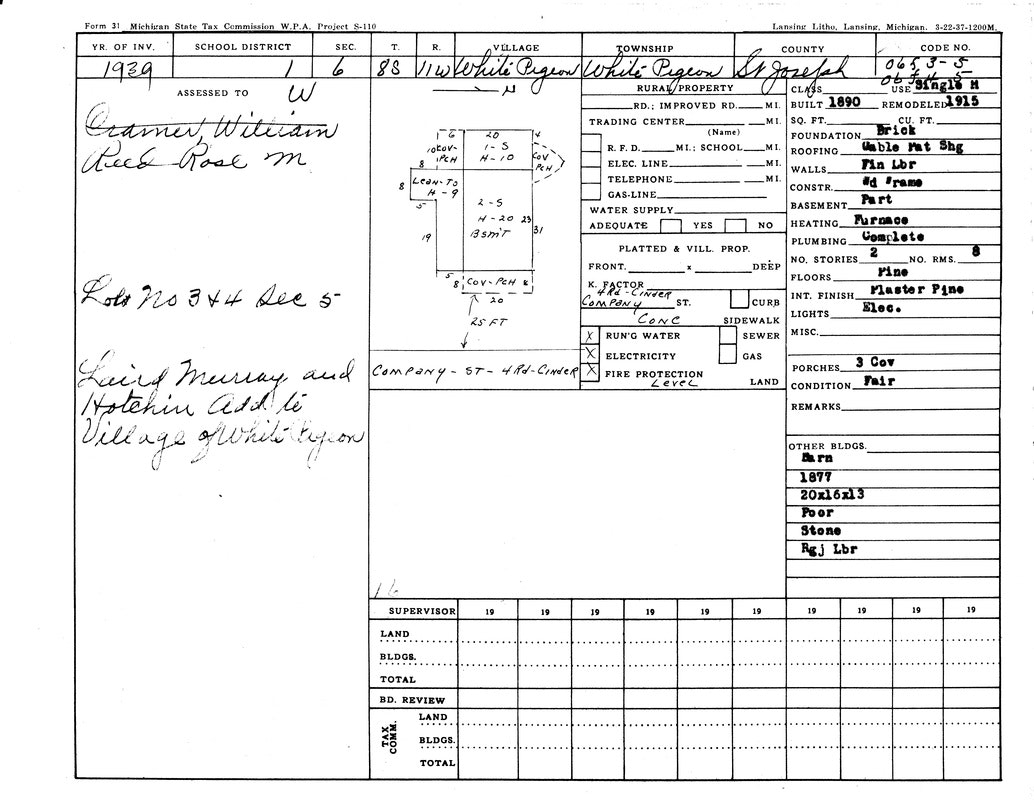 Form 31 Michigan State Tax Commission W.P.A. Project S-110
Lansing Litho, Lansing, Michigan. 3-22-37-1200M.
YR. OF INV. SCHOOL DISTRICT SEC. T. R. VILLAGE TOWNSHIP COUNTY CODE NO.
1939 1 6 8S 11W White Pigeon White Pigeon St Joseph 065 3-5
ASSESSED TO W
Cramer, William
Reed Rose M
Lots No 3 & 4 Sec 5
Laird Murray and
Hotchin Add to
Village of White Pigeon
N
6 20 4
10 COV- PCH
1-S
H-10
COV PCH
8
8 LEAN-TO
H-9
5
2-S
H-20 23
BSMT 31
19
5
8 COV-PCH 8
20
25 FT
COMPANY-ST-4RD-CINDER
16
RURAL PROPERTY
RD.; IMPROVED RD. MI.
TRADING CENTER MI.
(Name)
R. F. D. MI.; SCHOOL MI.
ELEC. LINE MI.
TELEPHONE MI.
GAS-LINE
WATER SUPPLY
ADEQUATE YES NO
PLATTED & VILL. PROP.
FRONT. x DEEP
K. FACTOR
4RD-CINDER
COMPANY ST. CURB
CONC SIDEWALK
X RUN'G WATER SEWER
X ELECTRICITY GAS
X FIRE PROTECTION
LEVEL LAND
CLASS USE Single H
BUILT 1890 REMODELED 1915
SQ. FT. CU. FT.
FOUNDATION Brick
ROOFING Gable Pat Shg
WALLS Fin Lbr
CONSTR. Wd Frame
BASEMENT Part
HEATING Furnace
PLUMBING Complete
NO. STORIES 2 NO. RMS. 8
FLOORS Pine
INT. FINISH Plaster Pine
LIGHTS Elec.
MISC.
PORCHES 3 Cov
CONDITION Fair
REMARKS
OTHER BLDGS.
Barn
1877
20x16x13
Poor
Stone
Rgj Lbr
SUPERVISOR 19 19 19 19 19 19 19 19 19
LAND
BLDGS.
TOTAL
BD. REVIEW
TAX COMM.
LAND
BLDGS.
TOTAL